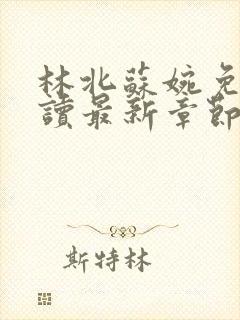 林北蘇婉免
讀最新章節
斯特林